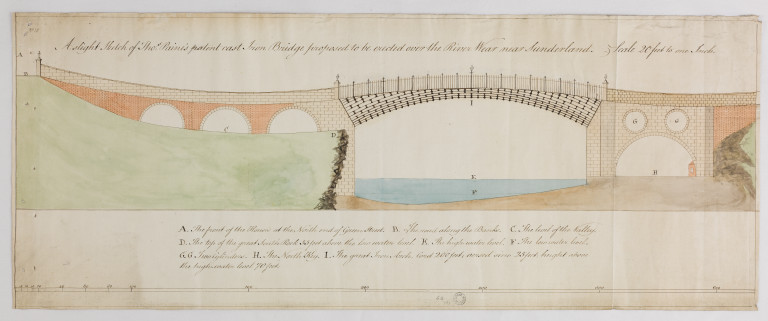 A slight Sketch of Thos. Paine's patent cast Iron Bridge proposed to be erected over the River Wear near Sunderland. Scale 20 feet to one Inch.
A
B
C
D
I
G G
H
E
F
A. The front of the Houses at the North end of Street. B. The road along the Banks. C. The level of the Valley.
D. The top of the great Rock 55 feet above the low water level. E. The high water level. F. The low water level.
G.G. Two Cylinders. H. The North Key. I. The great Iron Arch, Cord 200 feet, versed sine 33 feet, height above
the high water level 70 feet.